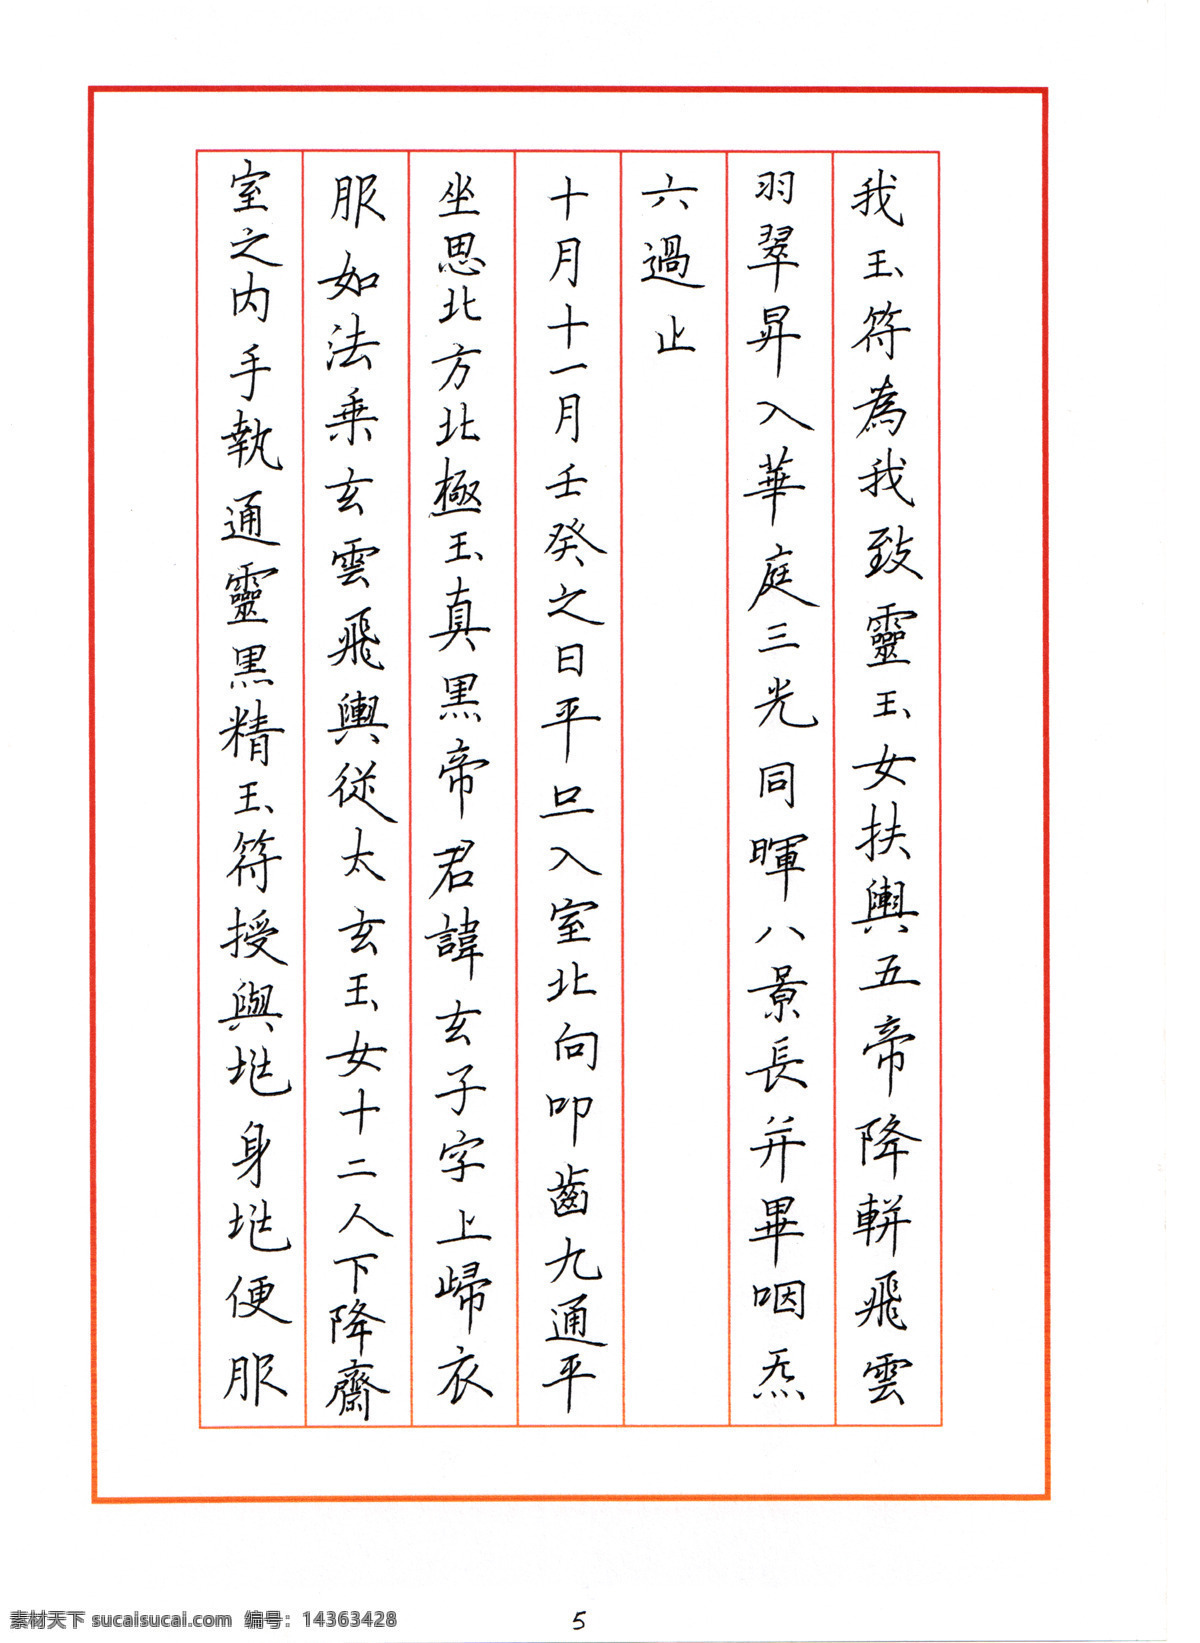 我玉符為我致靈玉女扶輿五帝降軿飛雲
羽翠昇入華庭三光同暉八景長并畢咽炁
六過止
十月十一月壬癸之日平旦入室北向叩齒九通平
坐思北方北極玉真黑帝君諱玄子字上歸衣
服如法乘玄雲飛輿從太玄玉女十二人下降齋
室之內手執通靈黑精玉符授與兆身兆便服
5
素材天下 sucaisucai.com 编号：14363428